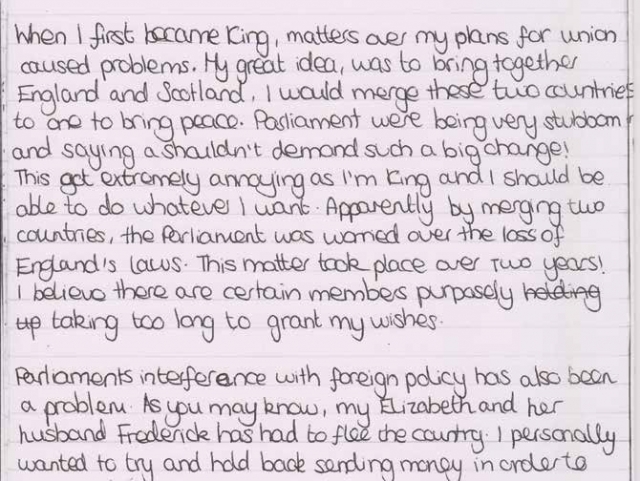 When I first became King, matters over my plans for union
caused problems. My great idea, was to bring together
England and Scotland, I would merge these two countries
to one to bring peace. Parliament were being very stubborn
and saying a shouldn't demand such a big change!
This got extremely annoying as I'm King and I should be
able to do whatever I want. Apparently by merging two
countries, the Parliament was worried over the loss of
England's laws. This matter took place over two years!
I believe there are certain members purposely holding
up taking too long to grant my wishes.
Parliaments interference with foreign policy has also been
a problem. As you may know, my Elizabeth and her
husband Frederick has had to flee the country. I personally
wanted to try and hold back sending money in order to